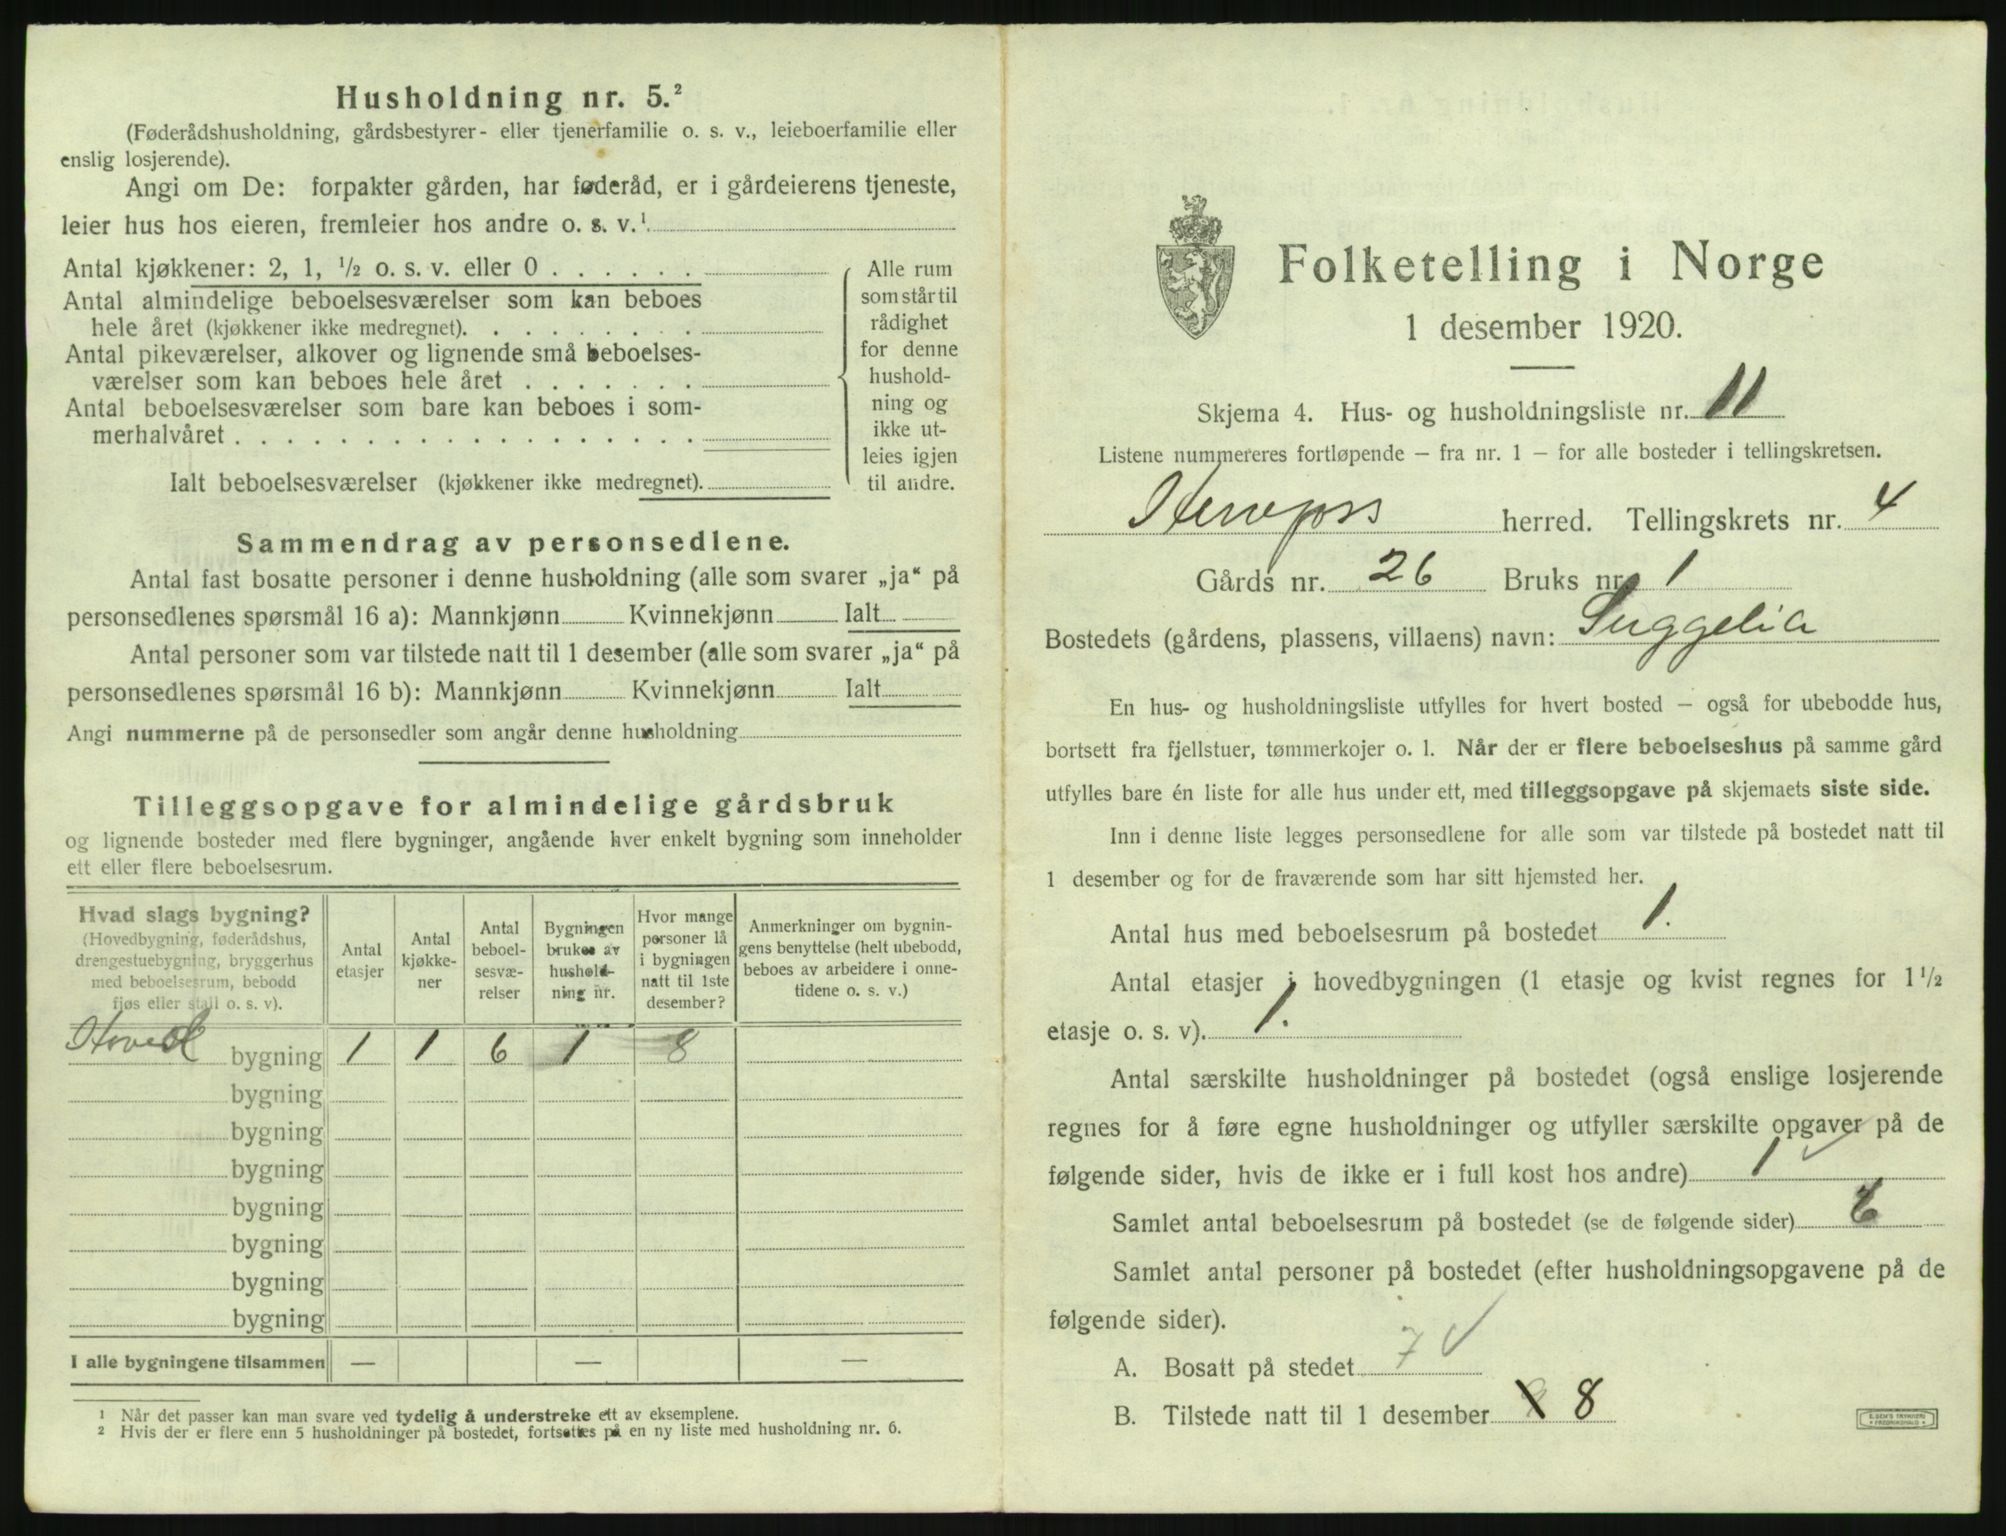 Husholdning nr. 5.²
(Føderådshusholdning, gårdsbestyrer- eller tjenerfamilie o. s. v., leieboerfamilie eller
enslig losjerende).
Angi om De: forpakter gården, har føderåd, er i gårdeierens tjeneste,
leier hus hos eieren, fremleier hos andre o. s. v.¹
Antal kjøkkener: 2, 1, ½ o. s. v. eller 0
Antal almindelige beboelsesværelser som kan beboes
hele året (kjøkkener ikke medregnet).
Antal pikeværelser, alkover og lignende små beboelses-
værelser som kan beboes hele året
Antal beboelsesværelser som bare kan beboes i som-
merhalvåret
Ialt beboelsesværelser (kjøkkener ikke medregnet).
Alle rum
som står til
rådighet
for denne
hushold-
ning og
ikke ut-
leies igjen
til andre.
Sammendrag av personsedlene.
Antal fast bosatte personer i denne husholdning (alle som svarer „ja“ på
personsedlenes spørsmål 16 a): Mannkjønn Kvinnekjønn Ialt
Antal personer som var tilstede natt til 1 desember (alle som svarer „ja“ på
personsedlenes spørsmål 16 b): Mannkjønn Kvinnekjønn Ialt
Angi nummerne på de personsedler som angår denne husholdning
Tilleggsopgave for almindelige gårdsbruk
og lignende bosteder med flere bygninger, angående hver enkelt bygning som inneholder
ett eller flere beboelsesrum.
Hvad slags bygning?
(Hovedbygning, føderådshus,
drengestuebygning, bryggerhus
med beboelsesrum, bebodd
fjøs eller stall o. s. v).
Antal
etasjer
Antal
kjøkke-
ner
Antal
beboel-
sesvæ-
relser
Bygningen
brukes av
hushold-
ning nr.
Hvor mange
personer lå
i bygningen
natt til 1ste
desember?
Anmerkninger om bygnin-
gens benyttelse (helt ubebodd,
beboes av arbeidere i onne-
tidene o. s. v.)
Hoved bygning 1 1 6 1 8
bygning
bygning
bygning
bygning
bygning
bygning
bygning
I alle bygningene tilsammen — — —
¹ Når det passer kan man svare ved tydelig å understreke ett av eksemplene.
² Hvis der er flere enn 5 husholdninger på bostedet, fortsettes på en ny liste med husholdning nr. 6.
Folketelling i Norge
1 desember 1920.
Skjema 4. Hus- og husholdningsliste nr. 11
Listene nummereres fortløpende – fra nr. 1 – for alle bosteder i tellingskretsen.
herred. Tellingskrets nr. 4
Gårds nr. 26 Bruks nr. 1
Bostedets (gårdens, plassens, villaens) navn: Suggelia
En hus- og husholdningsliste utfylles for hvert bosted – også for ubebodde hus,
bortsett fra fjellstuer, tømmerkojer o. l. Når der er flere beboelseshus på samme gård
utfylles bare én liste for alle hus under ett, med tilleggsopgave på skjemaets siste side.
Inn i denne liste legges personsedlene for alle som var tilstede på bostedet natt til
1 desember og for de fraværende som har sitt hjemsted her.
Antal hus med beboelsesrum på bostedet 1.
Antal etasjer i hovedbygningen (1 etasje og kvist regnes for 1½
etasje o. s. v). 1.
Antal særskilte husholdninger på bostedet (også enslige losjerende
regnes for å føre egne husholdninger og utfyller særskilte opgaver på de
følgende sider, hvis de ikke er i full kost hos andre) 1 ✓
Samlet antal beboelsesrum på bostedet (se de følgende sider)
Samlet antal personer på bostedet (efter husholdningsopgavene på de
følgende sider).
A. Bosatt på stedet 7 ✓
B. Tilstede natt til 1 desember 8